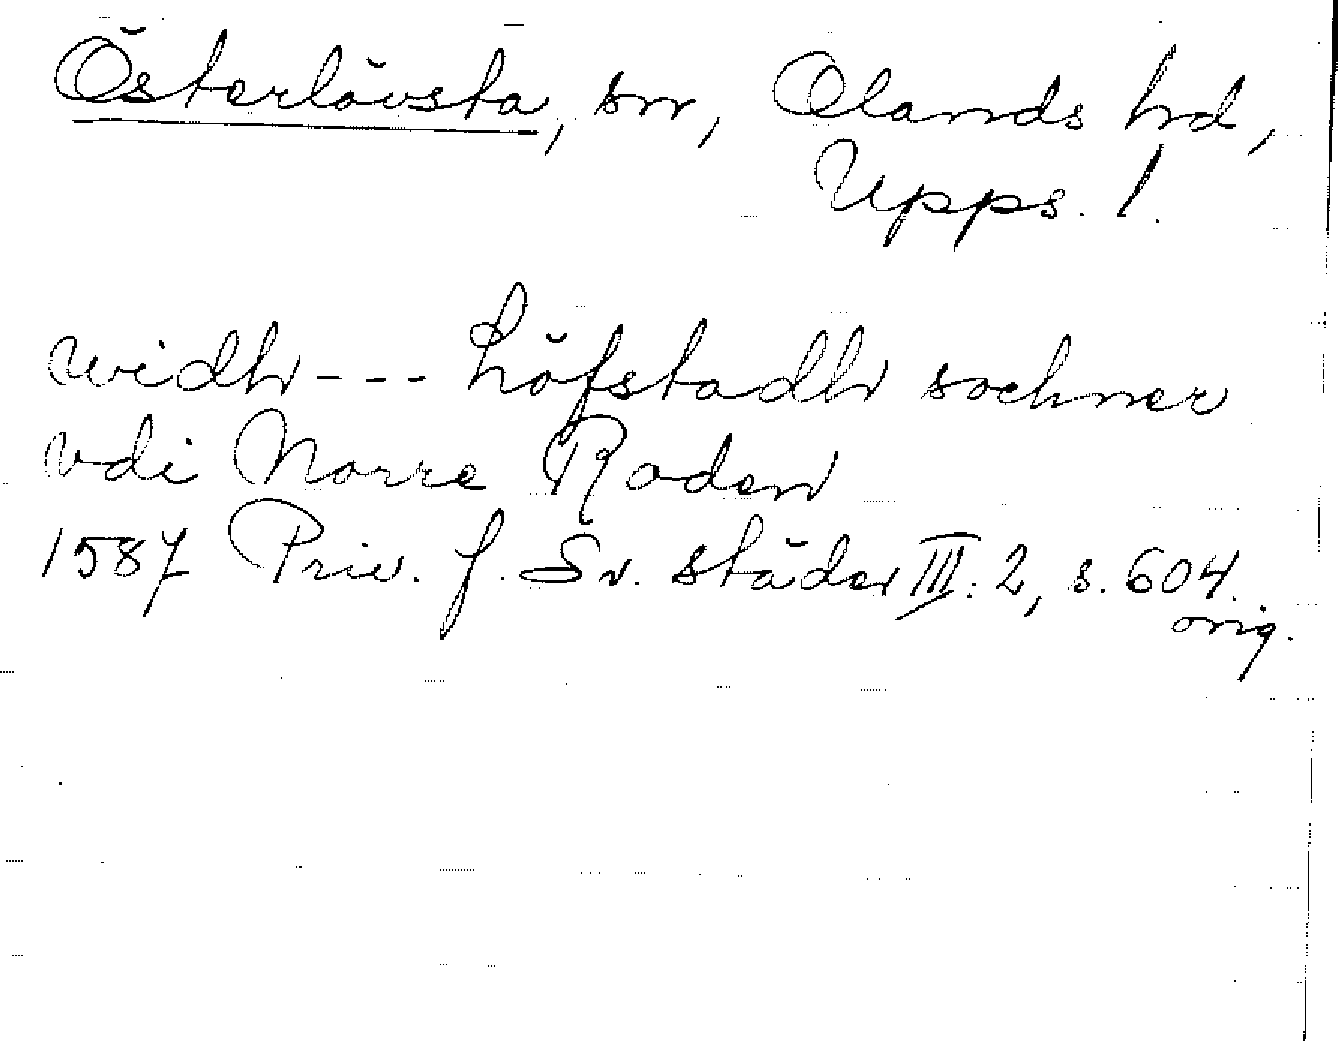 Österlövsta, sn, Olands hd,
Upps. l.
widh --- Löfstadh sochner
vdi Norre Roden
1587 Priv. f. Sv. städer III: 2, s. 604.
orig.